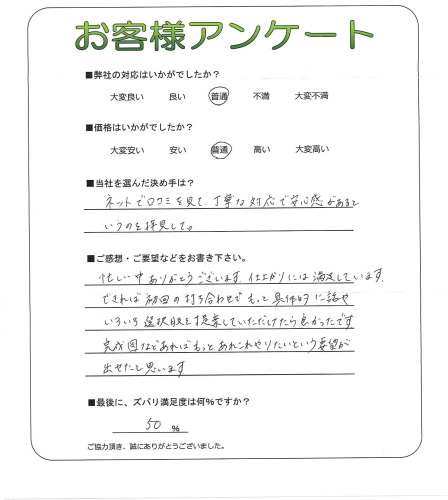 お客様アンケート
■弊社の対応はいかがでしたか?
大変良い 良い 普通 不満 大変不満
■価格はいかがでしたか?
大変安い 安い 普通 高い 大変高い
■当社を選んだ決め手は?
ネットで口コミを見て、丁寧な対応で安心感があると
いうのを拝見して。
■ご感想・ご要望などをお書き下さい。
忙しい中ありがとうございます。仕上がりには満足しています。
できれば初回の打ち合わせでもっと具体的に話や
いろいろ選択肢を提案していただけたら良かったです
完成図などあればもっとあれこれやりたいという要望が
出せたと思います
■最後に、ズバリ満足度は何%ですか?
50 %
ご協力頂き、誠にありがとうございました。